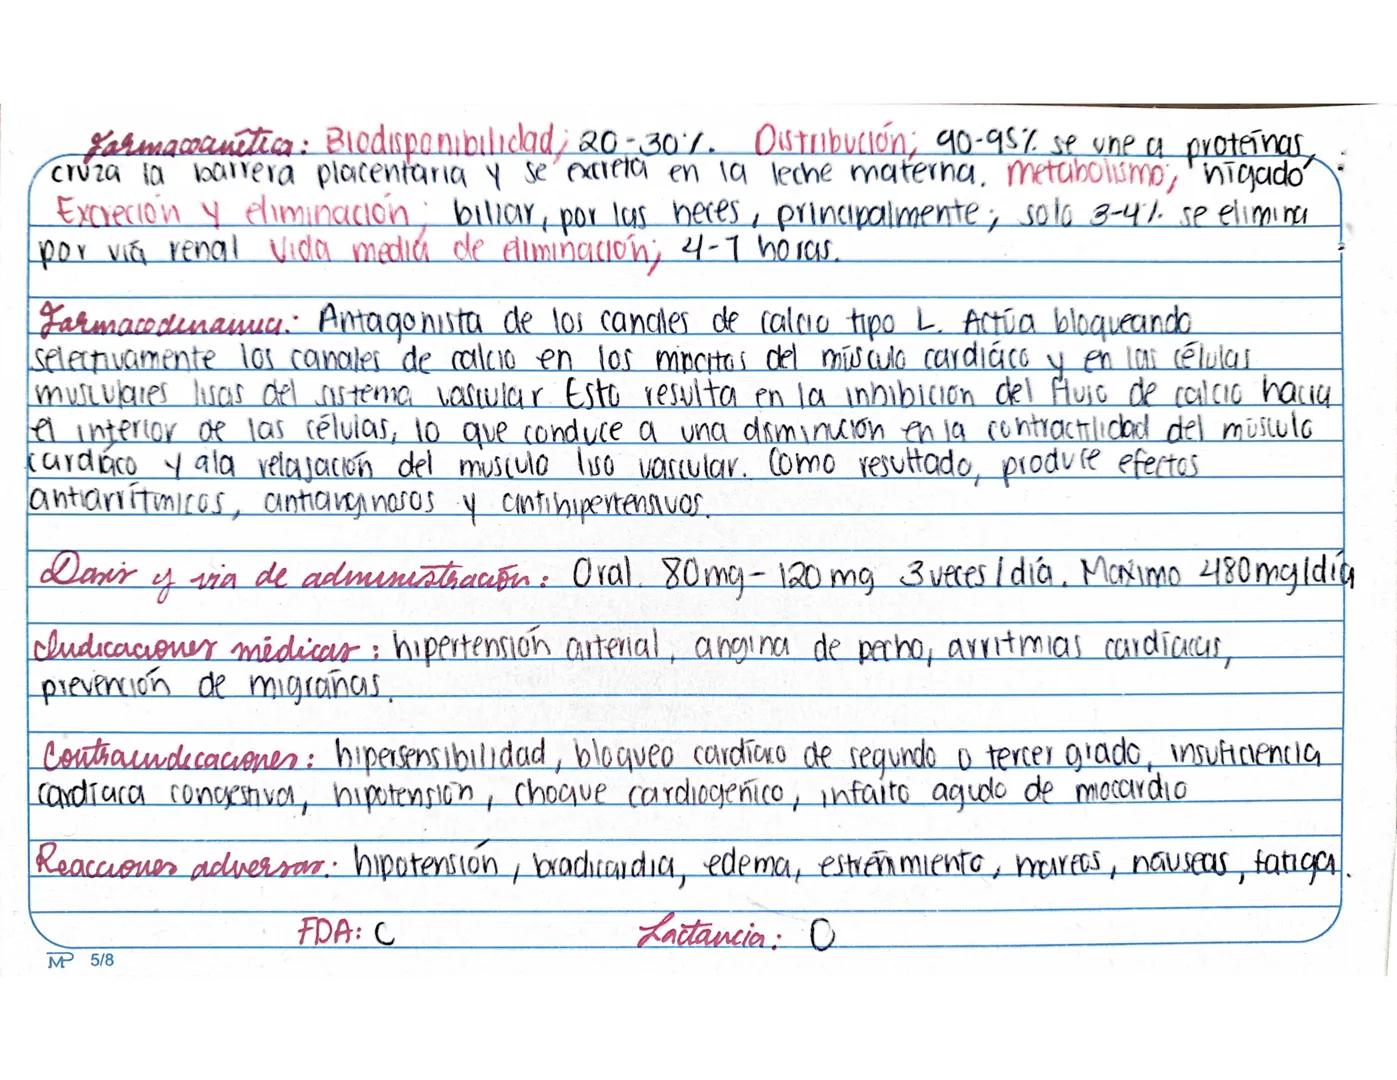 Farmacocinética: Biodisponibilidad; 20-30%. Distribución; 90-95% se une a proteínas,
cruza la barrera placentaria y se excreta en la leche materna. Metabolismo; hígado
Excreción y eliminación; biliar, por las heces, principalmente; solo 3-4% se elimina
por vía renal Vida media de eliminación; 4-7 horas.
Farmacodinamia: Antagonista de los canales de calcio tipo L. Actúa bloqueando
selectivamente los canales de calcio en los miocitos del músculo cardiáco y en las células
musculares lisas del sistema vascular Esto resulta en la inhibición del flujo de calcio hacia
el interior de las células, lo que conduce a una disminución en la contractilidad del músculo
cardiáco y ala relajación del musculo liso vascular. Como resultado, produce efectos
antiarrítmicos, antianginosos y antihipertensivos.
Dosis y via de administración: Oral. 80mg - 120 mg 3 veces / día. Maximo 480mg/día
Indicaciones médicas: hipertensión arterial, angina de pecho, arritmias cardíacas,
prevención de migrañas.
Contraindicaciones: hipersensibilidad, bloqueo cardíaco de segundo o tercer grado, insuficiencia
cardíaca congestiva, hipotensión, choque cardiogénico, infarto agudo de miocardio
Reacciones adversas: hipotensión, bradicardia, edema, estreñimiento, mareos, náuseas, fatiga.
FDA: C Lactancia: O
MP 5/8